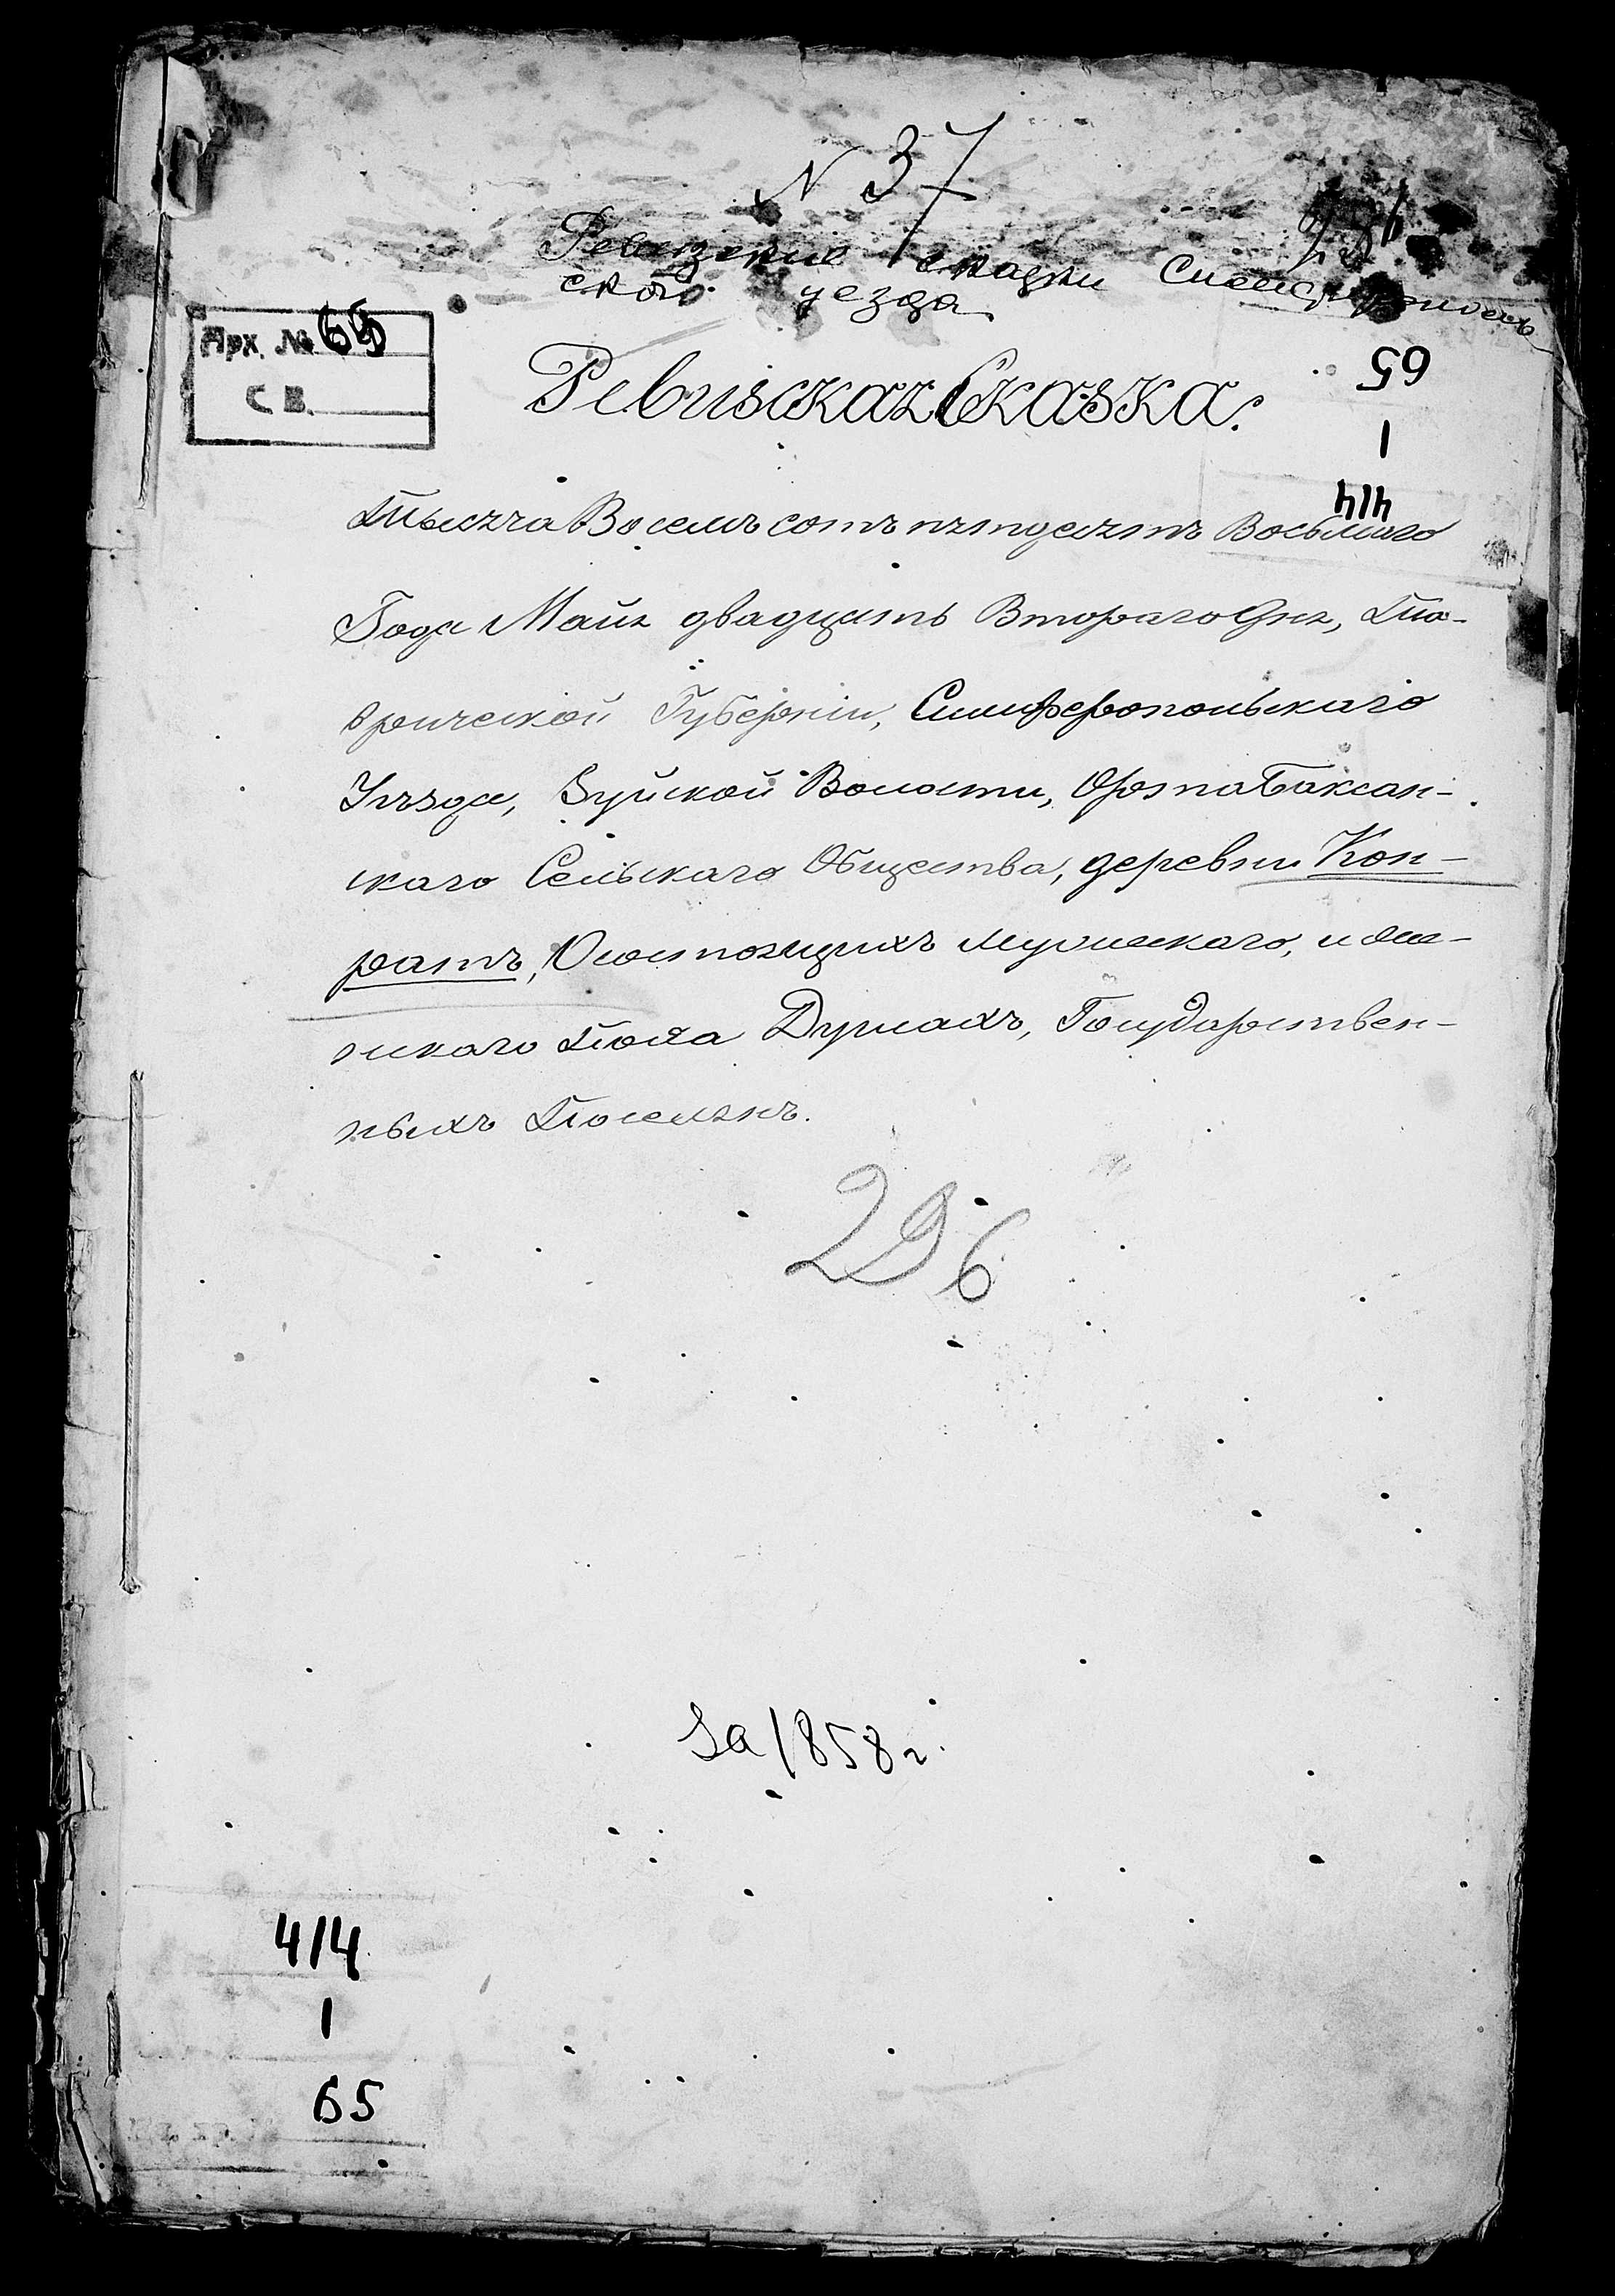 N 37
Ревизские сказки Симферополь
ской уезда
Арх. № 65
С В.
65
1
414
Ревиская Скаска.
Тысяча Восемь сотъ пятдесятъ Восьмаго
Года Маия двадцать Втораго Дня, Та-
врической Губерніи, Симферопольскаго
Уѣзда, Зуйской Волости, ОртаБаксан-
скаго Сельскаго Общества, деревни Кон-
ратъ, О состоящихъ мужескаго, и жен-
нскаго Пола Душахъ, Государствен-
ныхъ Поселянъ.
296
За 1858 г.
414
1
65